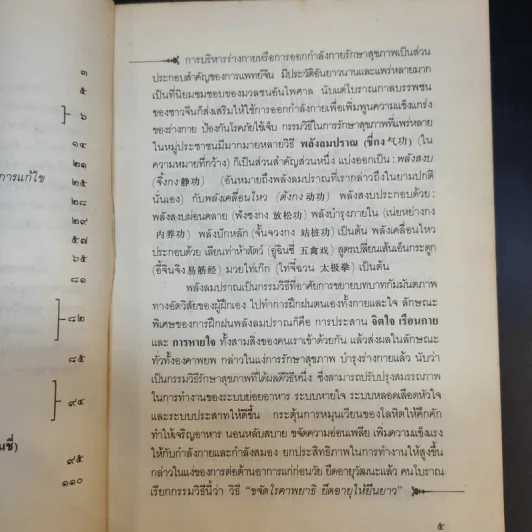 ๓
๕
๖
๑๔
๒๑
การแก้ไข
๒๕
๒๘
๒๙
๕๗
๖๕
๘๑
๘๒
๘๕
๙๔
นชี่)
๙๕
๑๑๐
การบริหารร่างกายหรือการออกกำลังกายรักษาสุขภาพเป็นส่วน
ประกอบสำคัญของการแพทย์จีน มีประวัติอันยาวนานและแพร่หลายมาก
เป็นที่นิยมชมชอบของมวลชนอันไพศาล นับแต่โบราณกาลบรรพชน
ของชาวจีนก็ส่งเสริมให้ใช้การออกกำลังกายเพื่อเพิ่มพูนความแข็งแกร่ง
ของร่างกาย ป้องกันโรคภัยไข้เจ็บ กรรมวิธีในการรักษาสุขภาพที่แพร่หลาย
ในหมู่ประชาชนมีมากมายหลายวิธี พลังลมปราณ (ชี่กง 气功) (ใน
ความหมายที่กว้าง) ก็เป็นส่วนสำคัญส่วนหนึ่ง แบ่งออกเป็น : พลังสงบ
(จิ้งกง 静功) (อันหมายถึงพลังลมปราณที่เรากล่าวถึงในยามปกติ
นั่นเอง) กับพลังเคลื่อนไหว (ต้งกง 动功) พลังสงบประกอบด้วย :
พลังสงบผ่อนคลาย (ฟั่งซงกง 放松功) พลังบำรุงภายใน (เน่ยหย่างกง
内养功) พลังปักหลัก (จั้นจวงกง 站桩功) เป็นต้น พลังเคลื่อนไหว
ประกอบด้วย เลียนท่าห้าสัตว์ (อู่ฉินซี่ 五禽戏) สูตรเปลี่ยนเส้นเอ็นกระดูก
(อี้จินจิง 易筋经) มวยไท่เก๊ก (ไท่จี๋ฉวน 太极拳) เป็นต้น
พลังลมปราณเป็นกรรมวิธีที่อาศัยการขยายบทบาทกัมมันตภาพ
ทางอัตวิสัยของผู้ฝึกเอง ไปทำการฝึกฝนตนเองทั้งกายและใจ ลักษณะ
พิเศษของการฝึกฝนพลังลมปราณก็คือ การประสาน จิตใจ เรือนกาย
และ การหายใจ ทั้งสามสิ่งของคนเราเข้าด้วยกัน แล้วส่งผลในลักษณะ
ทั่วทั้งองคาพยพ กล่าวในแง่การรักษาสุขภาพ บำรุงร่างกายแล้ว นับว่า
เป็นกรรมวิธีรักษาสุขภาพที่ได้ผลดีวิธีหนึ่ง ซึ่งสามารถปรับปรุงสมรรถภาพ
ในการทำงานของระบบย่อยอาหาร ระบบหายใจ ระบบหลอดเลือดหัวใจ
และระบบประสาทให้ดีขึ้น กระตุ้นการหมุนเวียนของโลหิตให้คึกคัก
ทำให้เจริญอาหาร นอนหลับสบาย ขจัดความอ่อนเพลีย เพิ่มความแข็งแรง
ให้กับกำลังกายและกำลังสมอง ยกประสิทธิภาพในการทำงานให้สูงขึ้น
กล่าวในแง่ของการต่อต้านอาการแก่ก่อนวัย ยืดอายุวัฒนะแล้ว คนโบราณ
เรียกกรรมวิธีนี้ว่า วิธี “ขจัดโรคาพยาธิ ยืดอายุให้ยืนยาว”
๕